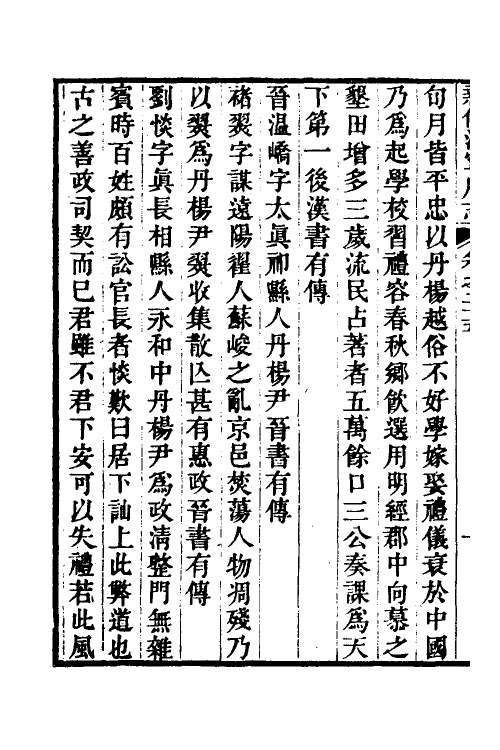 旬月皆平忠以丹楊越俗不好學嫁娶禮儀衰於中國
乃爲起學校習禮容春秋鄉飲選用明經郡中向慕之
墾田增多三歲流民占著者五萬餘口三公奏課爲天
下第一後漢書有傳
晉溫嶠字太眞祁縣人丹楊尹晉書有傳
褚翜字謀遠陽翟人蘇峻之亂京邑焚蕩人物凋殘乃
以翜爲丹楊尹翜收集散亾甚有惠政晉書有傳
劉惔字眞長相縣人永和中丹楊尹爲政淸整門無雜
賓時百姓頗有訟官長者惔歎曰居下訕上此弊道也
古之善政司契而已君雖不君下安可以失禮若此風